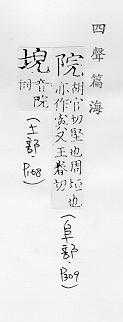 四聲篇海
院 胡官切堅也周垣也
亦作寏又王眷切
(阜部·P.309)
堄 音院
同
(土部·P.108)